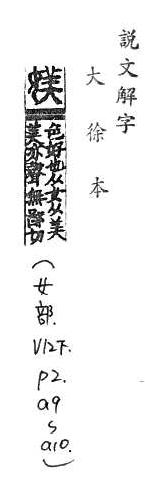 說文解字
大徐本
媄
色好也从女从美
美亦聲無鄙切
(女部.
V12下.
P2.
a9
s
a10.)